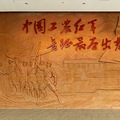 中国工农红军
长征最后出发